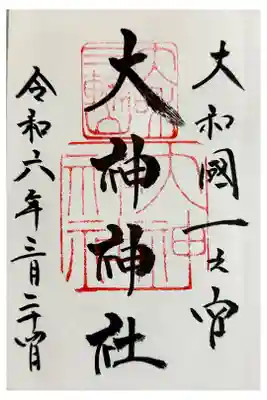 大和國一之宮
大神神社
令和六年三月二十四日
大神
神社